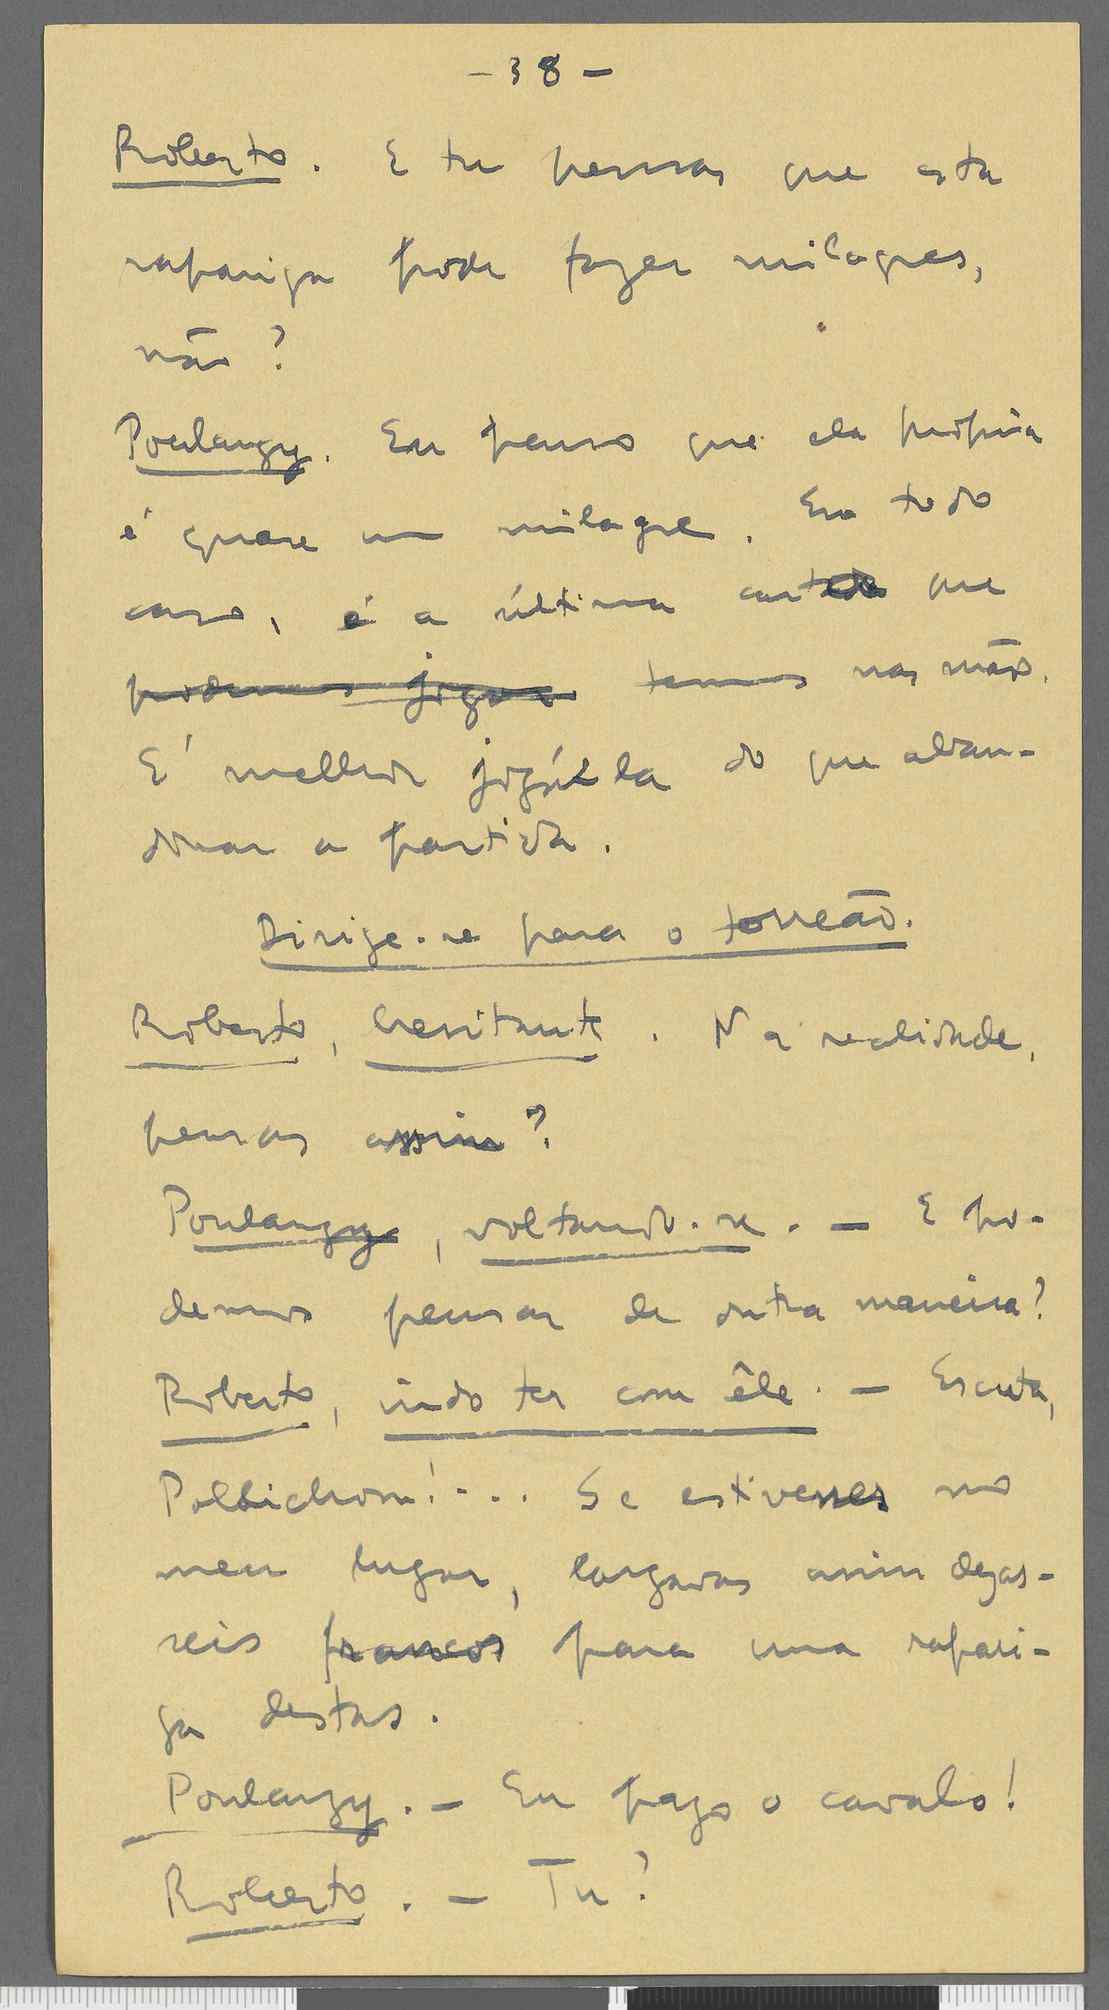 - 38 -
Roberto. E tu pensas que esta
rapariga pode fazer milagres,
não?
Poulangy. Eu penso que ela própria
é quase um milagre. Em todo
caso, é a última carta que
podemos jogar temos nas mãos.
E' melhor jogá-la do que aban-
donar a partida.
Dirige-se para o torreão.
Roberto, hesitante. Na realidade,
pensas assim?
Poulangy, voltando-se. — E po-
demos pensar de outra maneira?
Roberto, indo ter com êle. — Escuta,
Pollichon!... Se estivesses no
meu lugar, largavas assim dezas-
seis francos para uma rapari-
ga destas.
Poulangy. — Eu pago o cavalo!
Roberto. — Tu?